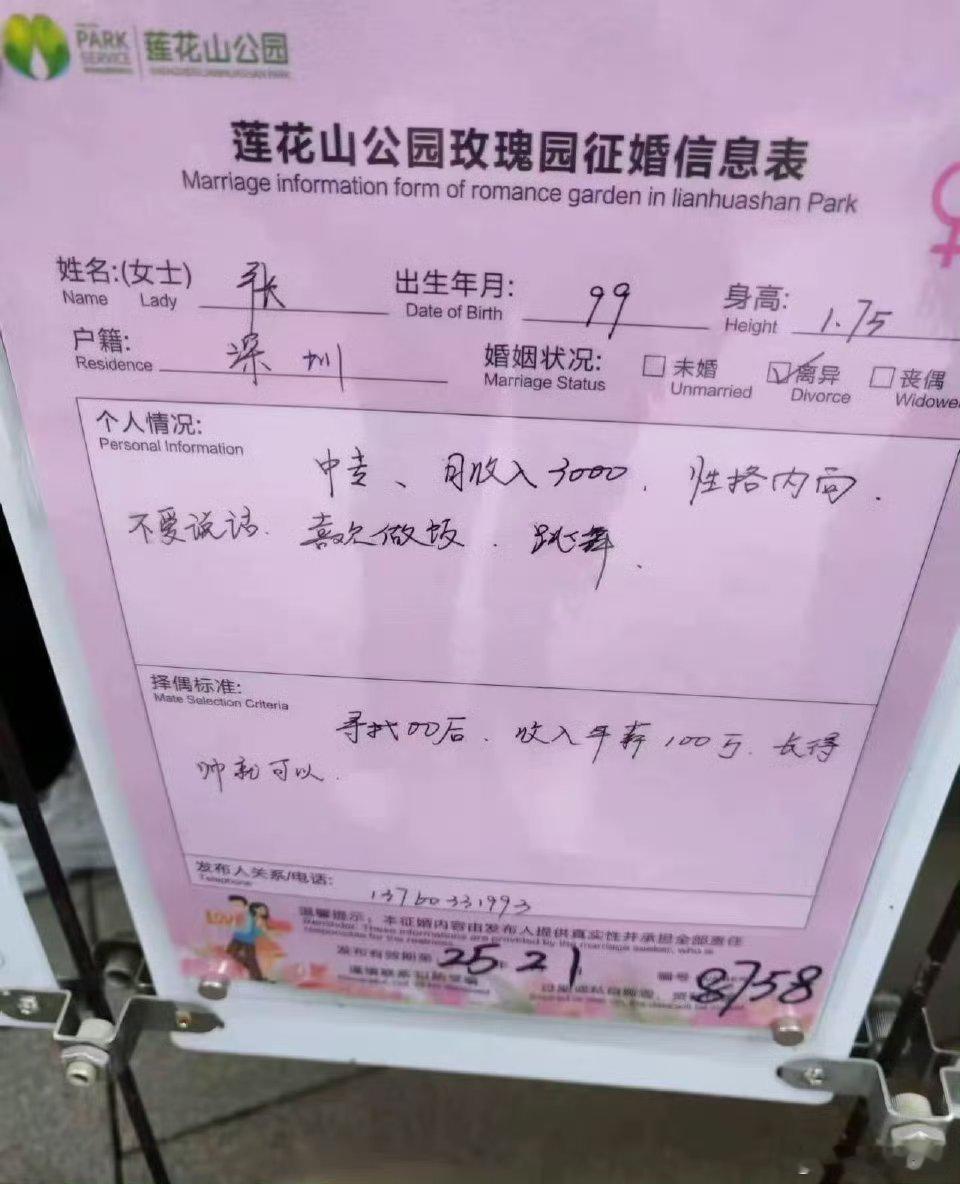 PARK SERVICE 莲花山公园
莲花山公园玫瑰园征婚信息表
Marriage information form of romance garden in lianhuashan Park
姓名:(女士) 张 出生年月: 99 身高: 1.75
Name Lady Date of Birth Height
户籍: 深圳 婚姻状况: 未婚 离异 丧偶
Residence Marriage Status Unmarried Divorce Widowe
个人情况:
Personal Information
中专、月收入3000.性格内向.
不爱说话.喜欢做饭.跳舞.
择偶标准:
Mate Selection Criteria
寻找00后.收入年薪100万.长得
帅就可以.
发布人关系/电话: 13760331993
Telephone
LOVE
温馨提示：本征婚内容由发布人提供真实性并承担全部责任
Reminder: These informations are provided by the marriage seeker, who is
responsible for the realness.
发布有效期至 25.21 编号 8758